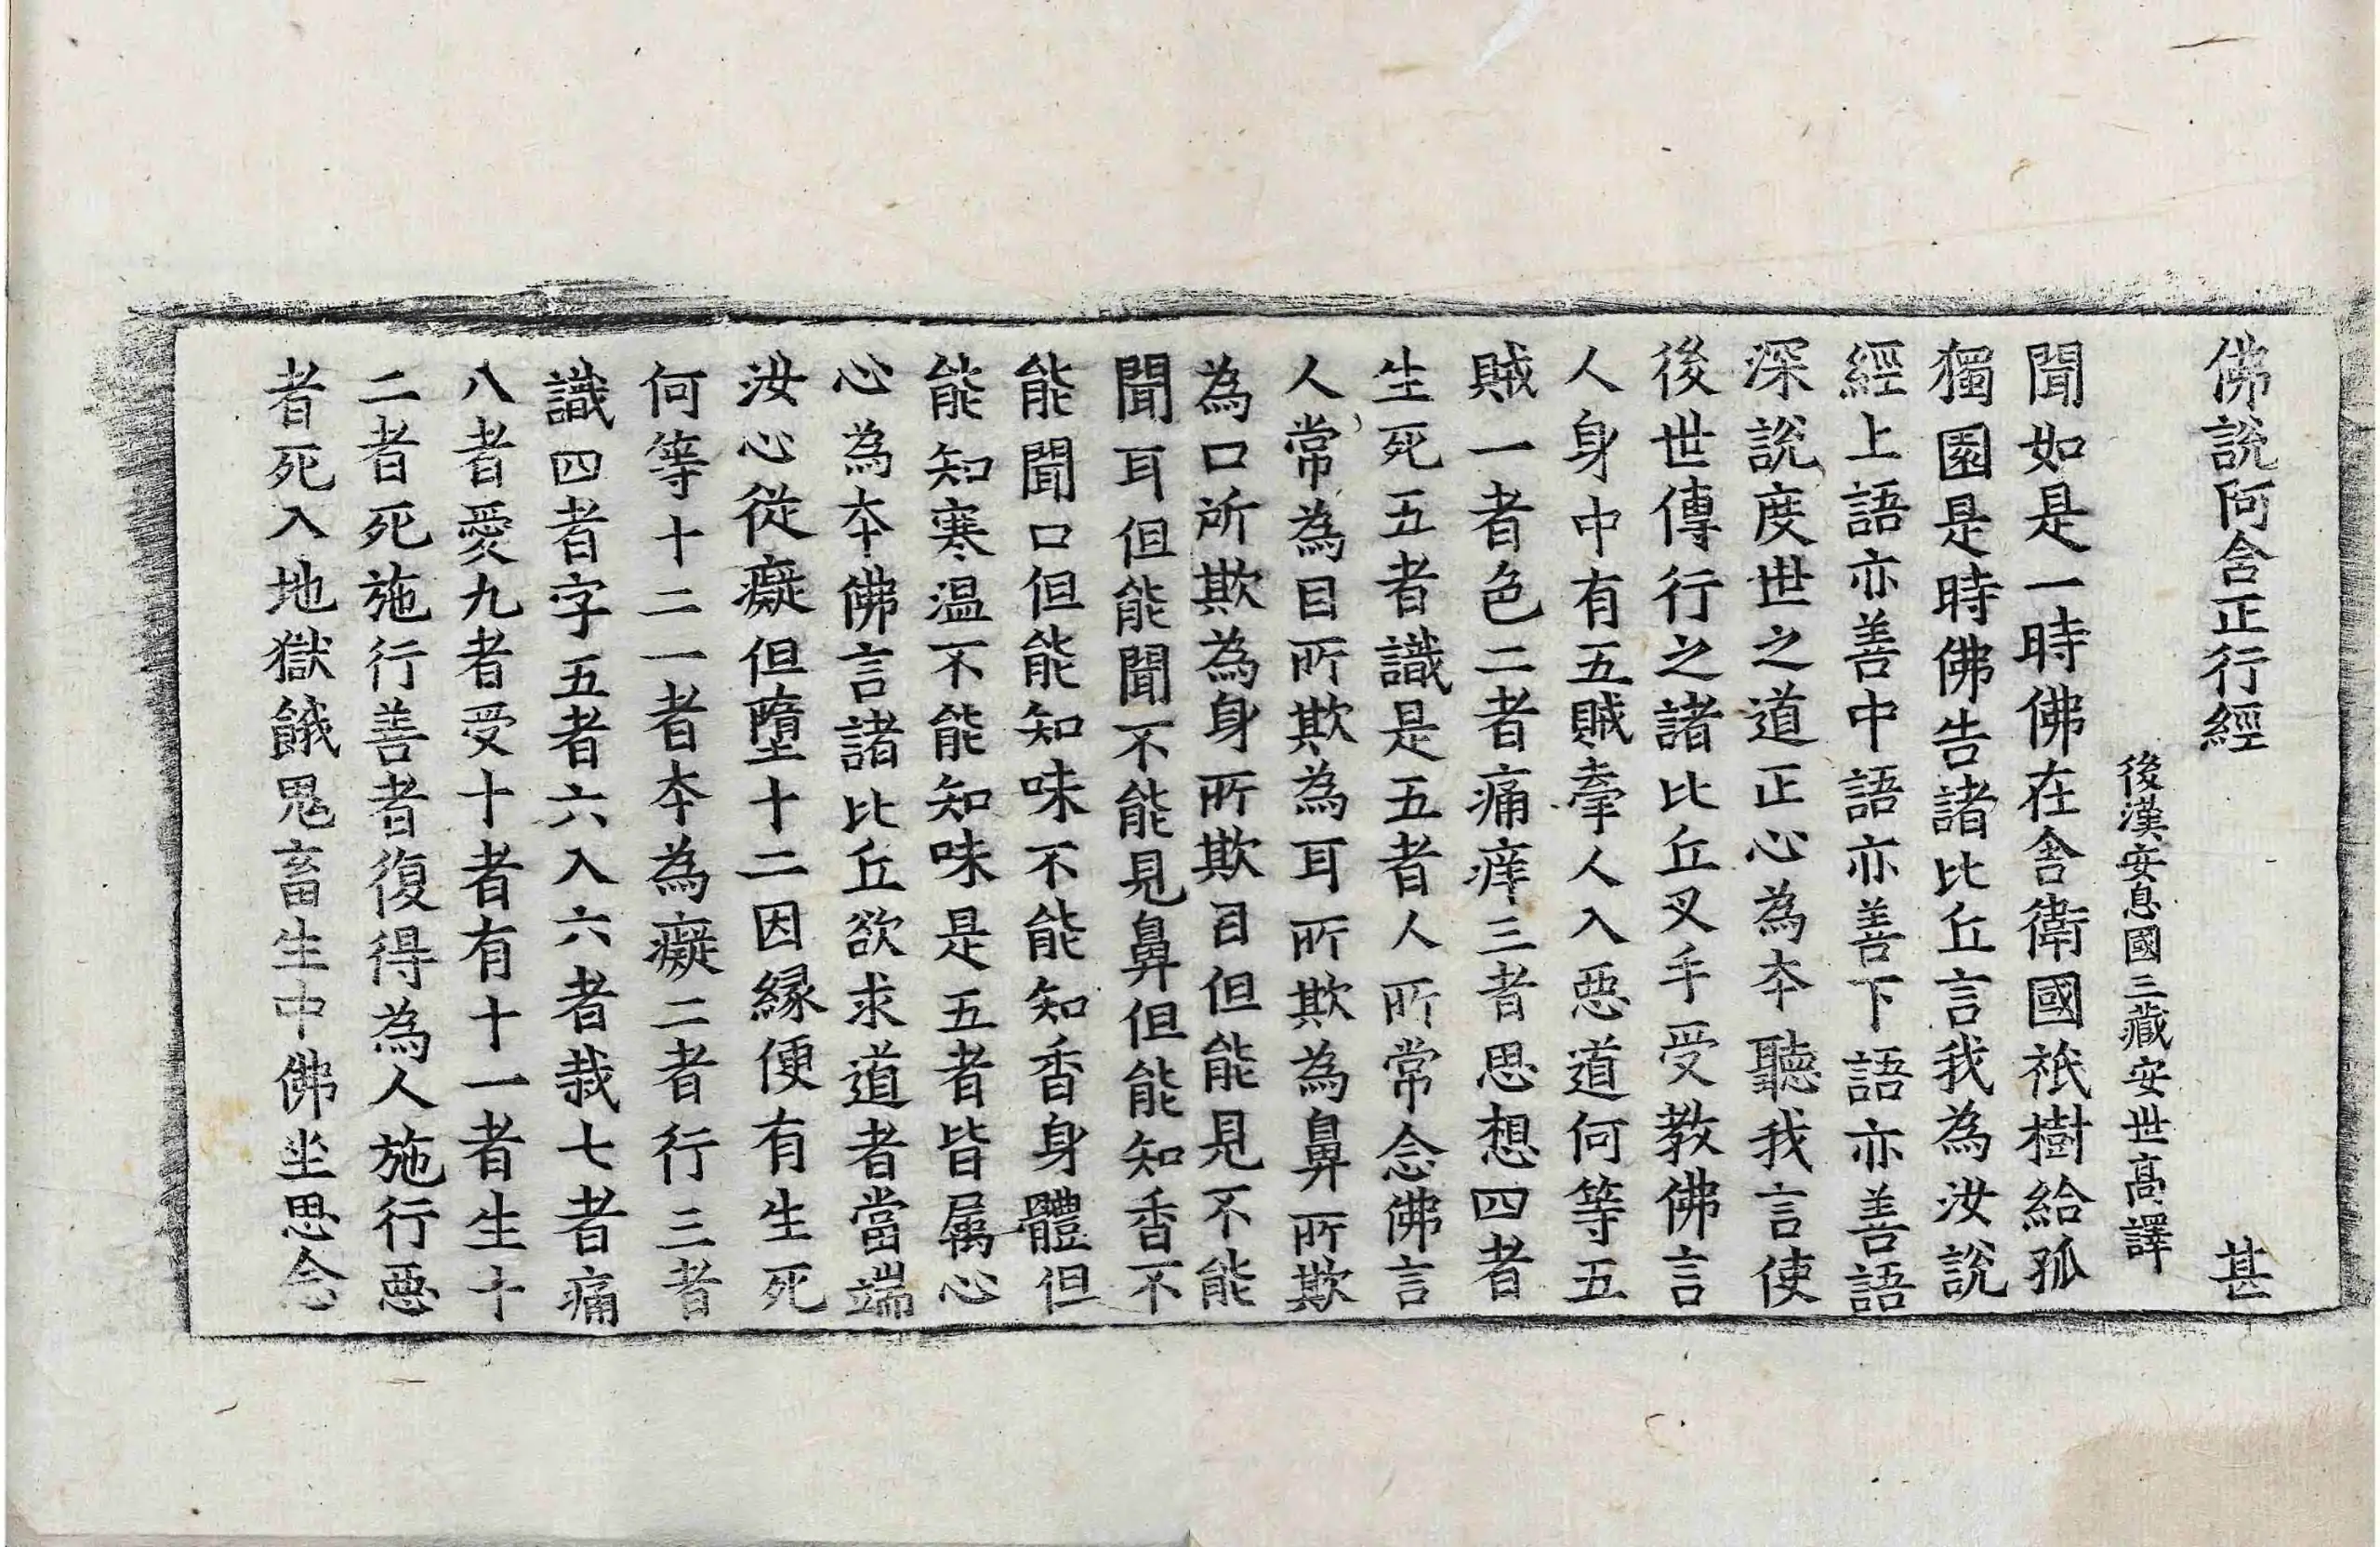 佛說阿含正行經 甚
後漢安息國三藏安世高譯
聞如是一時佛在舎衛國祇樹給孤
獨園是時佛告諸比丘言我為汝說
經上語亦善中語亦善下語亦善語
深說度世之道正心為本聽我言使
後世傳行之諸比丘叉手受教佛言
人身中有五賊牽人入惡道何等五
賊一者色二者痛痒三者思想四者
生死五者識是五者人所常念佛言
人常為目所欺為耳所欺為鼻所欺
為口所欺為身所欺目但能見不能
聞耳但能聞不能見鼻但能知香不
能聞口但能知味不能知香身體但
能知寒温不能知味是五者皆属心
心為本佛言諸比丘欲求道者當端
汝心從癡但墮十二因縁便有生死
何等十二一者本為癡二者行三者
識四者字五者六入六者栽七者痛
八者愛九者受十者有十一者生十
二者死施行善者復得為人施行惡
者死入地獄餓鬼畜生中佛坐思念